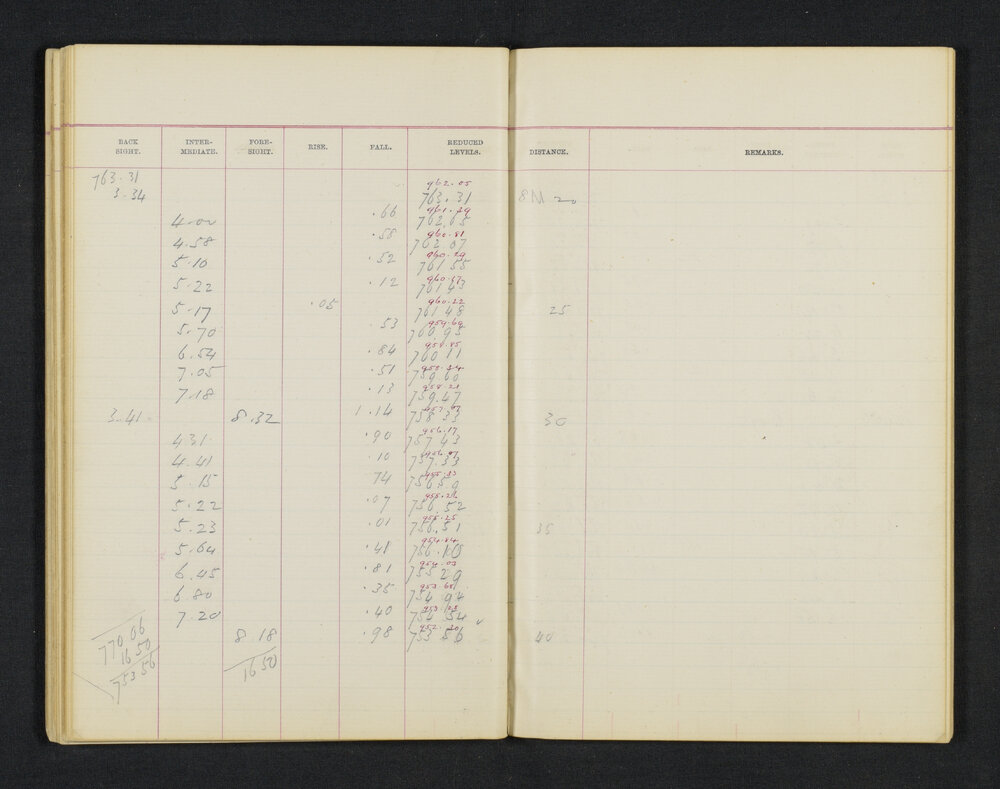 BACK SIGHT. INTER-MEDIATE. FORE-SIGHT. RISE. FALL. REDUCED LEVELS. DISTANCE. REMARKS.
763.31 962.05
3.34 763.31 8M 20
.66 961.39
4.00 762.65
.58 960.81
4.58 762 07
.52 960.29
5.10 761 55
.12 960.17
5.22 761 43
.05 960.22
5.17 761 48 25
.53 959.69
5.70 760 95
.84 958.85
6.54 760 11
.51 958.34
7.05 759 60
.13 958.21
7.18 759.47
1.14 957.07
3.41 8.32 758 33 30
.90 956.17
4 31 757 43
.10 956.07
4.41 757.33
74 955.33
5.15 756 59
.07 955.26
5.22 756.52
.01 955.25
5.23 756.51 35
.41 954.84
5.64 756.10
.81 954.03
6.45 755 29
.35 953.68
6.80 754 94
.40 953.28
7.20 754 54
.98 952.30
8.18 753 56 40
770 06
16 50
753 56
16 50